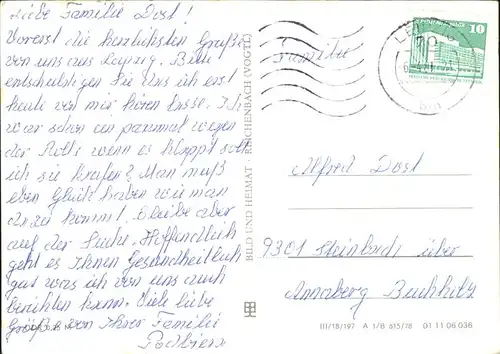 Liebe Familie Dost!
Vorerst die herzlichsten Grüße
von uns aus Leipzig. Bitte
entschuldigen Sie das ich erst
heute von mir hören lasse. Ich
war schon ein paarmal wegen
der Rolls wenn es klappt soll
ich sie kaufen? Man muß
eben Glück haben wie man
dazu kommt. Bleibe aber
auf der Suche. Hoffendlich
geht es Ihnen Gesundheitlich
gut was ich von uns auch
berichten kann. Viele liebe
Grüße von Ihrer Familie
BILD UND HEIMAT · REICHENBACH (VOGTL)
10
Familie
Alfred Dost
9301 Steinbach über
Annaberg Buchholz
III/18/197 A 1/B 615/78 01 11 06 036